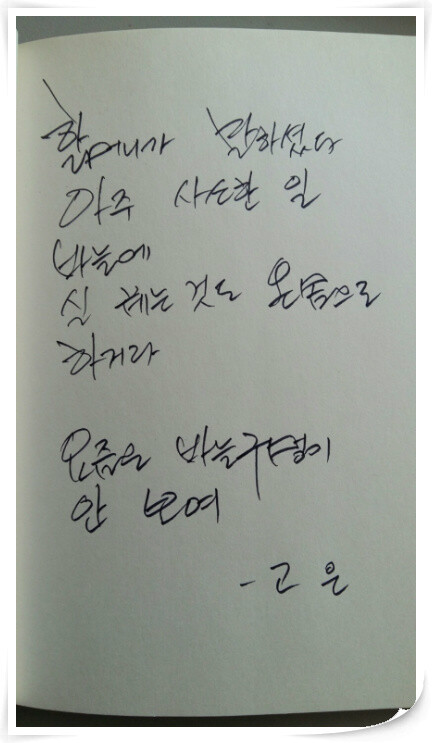 할머니가 말하셨다
아주 사소한 일
바늘에
실 꿰는 것도 온몸으로
하거라
요즘은 바늘구멍이
안 보여
- 고 은